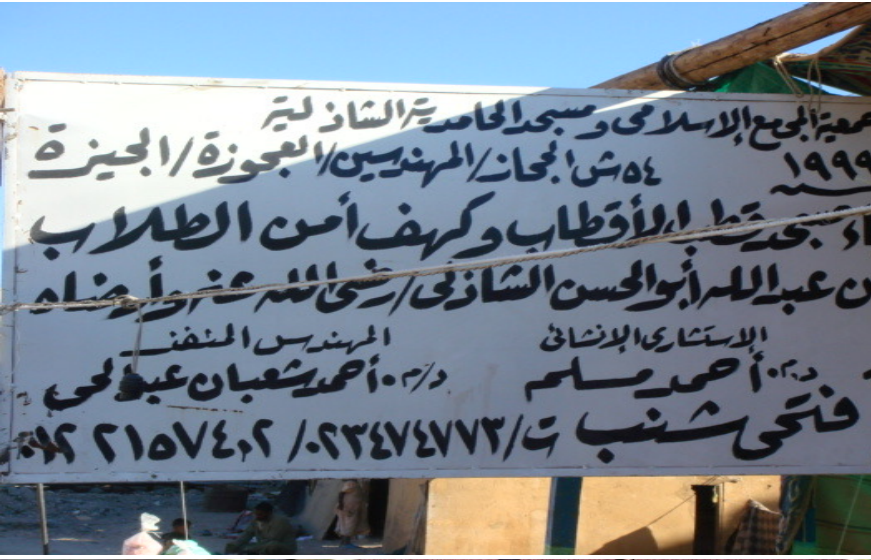 جمعية المجمع الإسلامى ومسجد الحامدية الشاذلية
١٩٩٩ ٥٤ ش الحجاز/المهندسين/العجوزة/الجيزة
سنة
مسجد قطب الأقطاب وكهف أمن الطلاب
بن عبدالله أبو الحسن الشاذلى/رضى الله عنه وأرضاه
الإستشارى الإنشائى المهندس المنفذ
د.م.أحمد مسلم د/م.أحمد شعبان عبدالحى
فتحى شنب ت/٠٢٣٤٧٤٧٧٣/